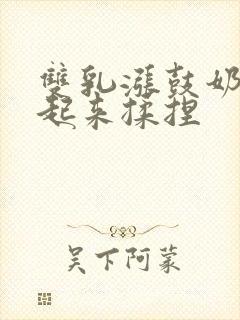 雙乳漲鼓奶
起来揉捏
吴下阿蒙